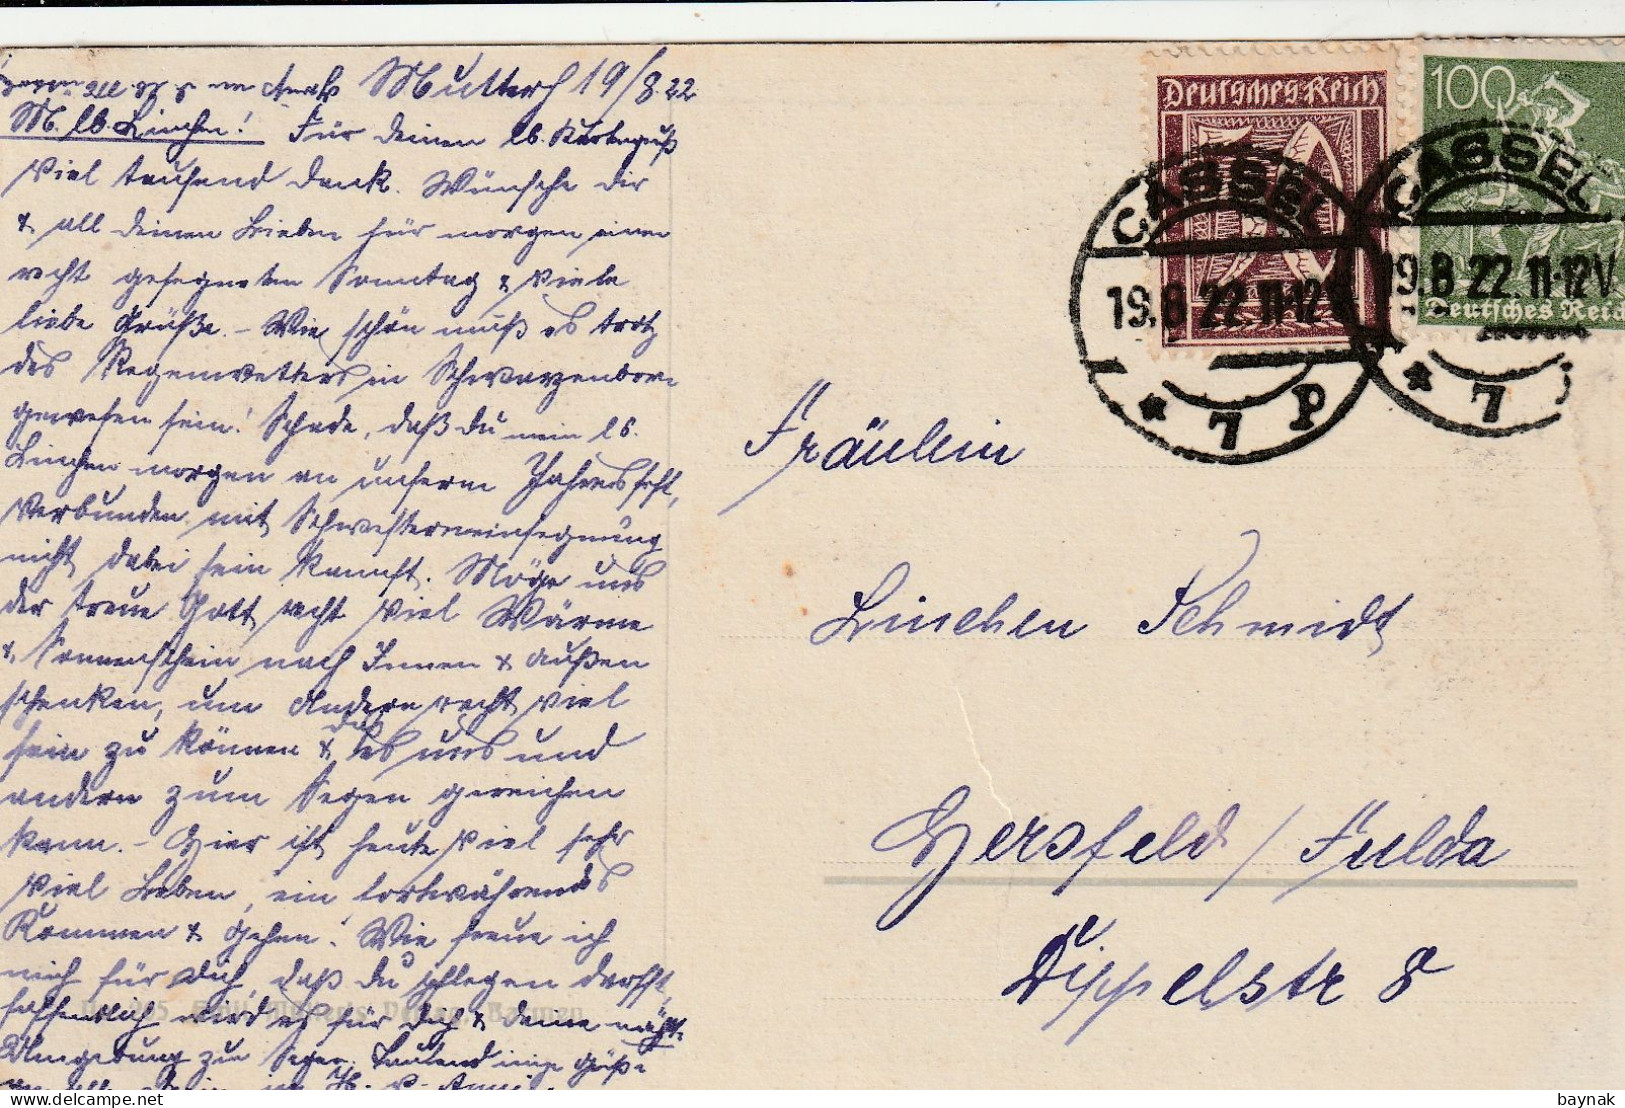 Mutterh 19/8 22
M. lb. Linchen! Für deinen lb. Kartengruß
viel tausend Dank. Wünsche dir
& all deinen Lieben für morgen einen
recht gesegneten Sonntag & viele
liebe Grüße. - Wie schön muß es trotz
des Regenwetters in Schwarzenborn
gewesen sein! Schade, daß du mein lb.
Linchen morgen an unserm Jahresfest,
verbunden mit Schwesterneinsegnung
nicht dabei sein kannst. Möge uns
der treue Gott recht viel Wärme
& Sonnenschein nach Innen & außen
schenken, um Andern recht viel
sein zu können & daß es uns und
andern zum Segen gereichen
kann. - Hier ist heute viel sehr
viel Leben, ein fortwährendes
Kommen & Gehen! Wie freue ich
mich für dich, daß du pflegen darfst,
hoffentlich wird es für dich & deine nächste
Umgebung zum Segen. Tausend innige Grüße
Deutsches Reich
100
Deutsches Reich
CASSEL
19.8.22.11-12V.
* 7 P
CASSEL
19.8.22.11-12V.
* 7
Fräulein
Linchen Schmidt
Hersfeld / Fulda
Dippelstr 8
baynak